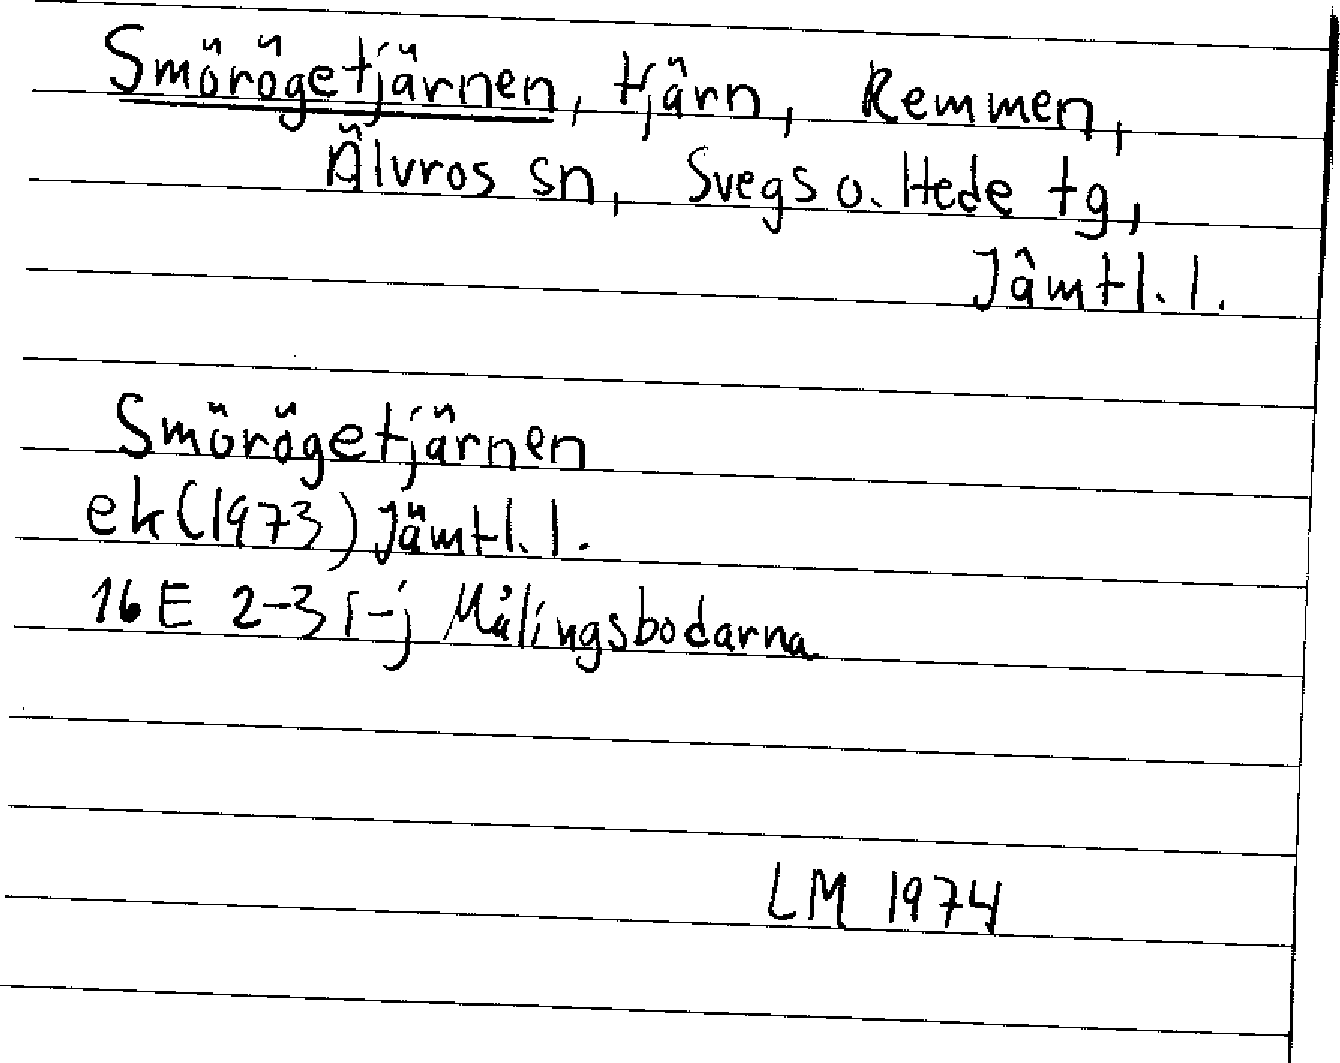 Smörögetjärnen, tjärn, Remmen,
Älvros sn, Svegs o. Hede tg,
Jämtl. l.
Smörögetjärnen
ek (1973) Jämtl. l.
16 E 2-3 i-j Målingsbodarna
LM 1974